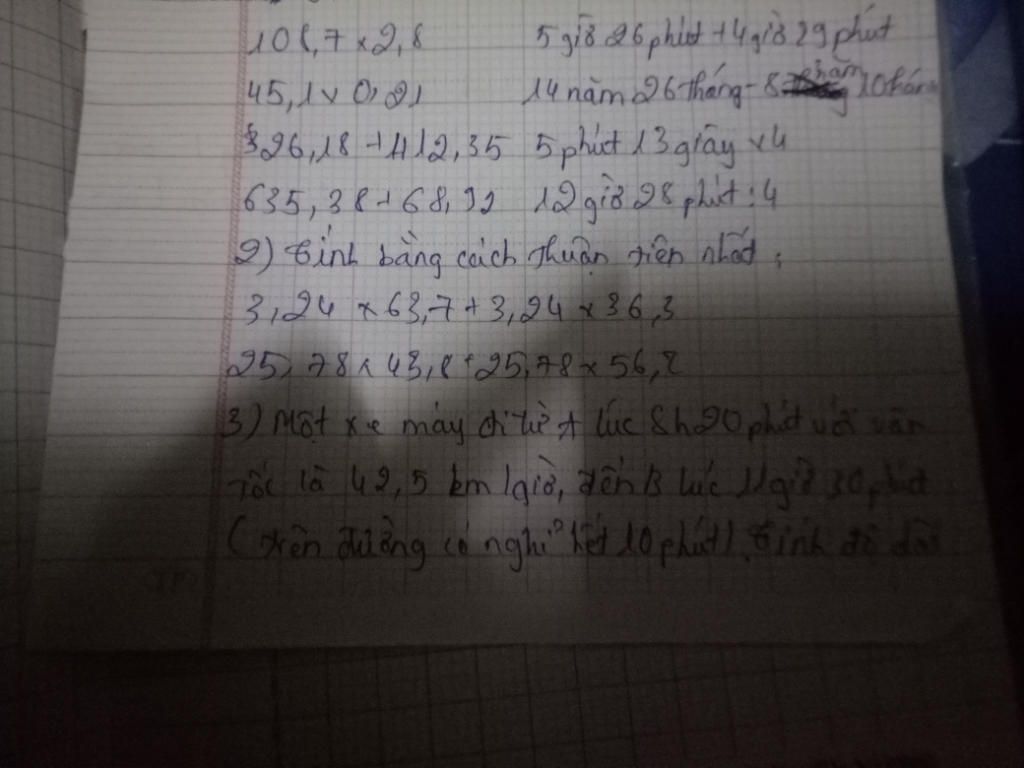 108,7 x 2,8 5 giờ 26 phút + 4 giờ 29 phút
45,1 x 0,21 14 năm 26 tháng - 8 năm 10 thán
326,18 + 412,35 5 phút 13 giây x 4
635,38 + 68,92 12 giờ 28 phút : 4
2) Tính bằng cách thuận tiện nhất :
3,24 x 63,7 + 3,24 x 36,3
25,78 x 43,8 + 25,78 x 56,2
3) Một xe máy đi từ A lúc 8h20 phút với vận
tốc là 42,5 km/giờ, đến B lúc 11 giờ 30 phút
(trên đường có nghỉ hết 10 phút). Tính độ dài